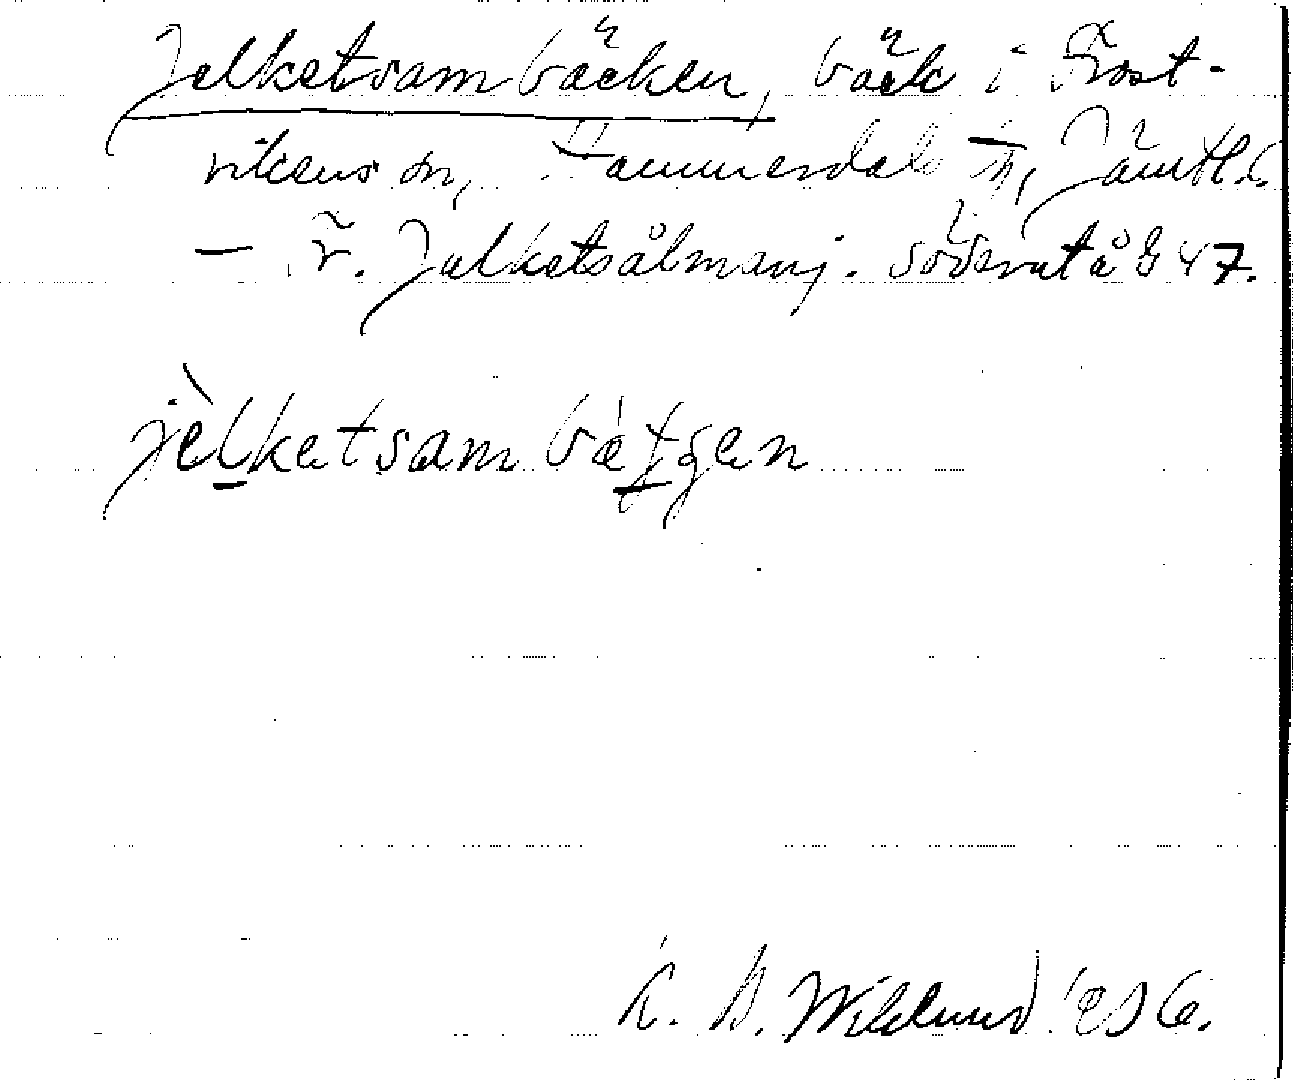 Jelketsambäcken, bäck i Frost-
vikens sn, Hammerdals h, Jämtl. l.
— N. Jalketsålmanj. söderut å G 47.
jèlketsam bætʃen
K. B. Wiklund 1936.